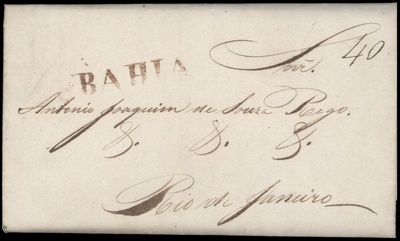 BAHIA
Snr. 40
Antonio Joaquim de Souza Rego.
&. &. &.
Rio de Janeiro